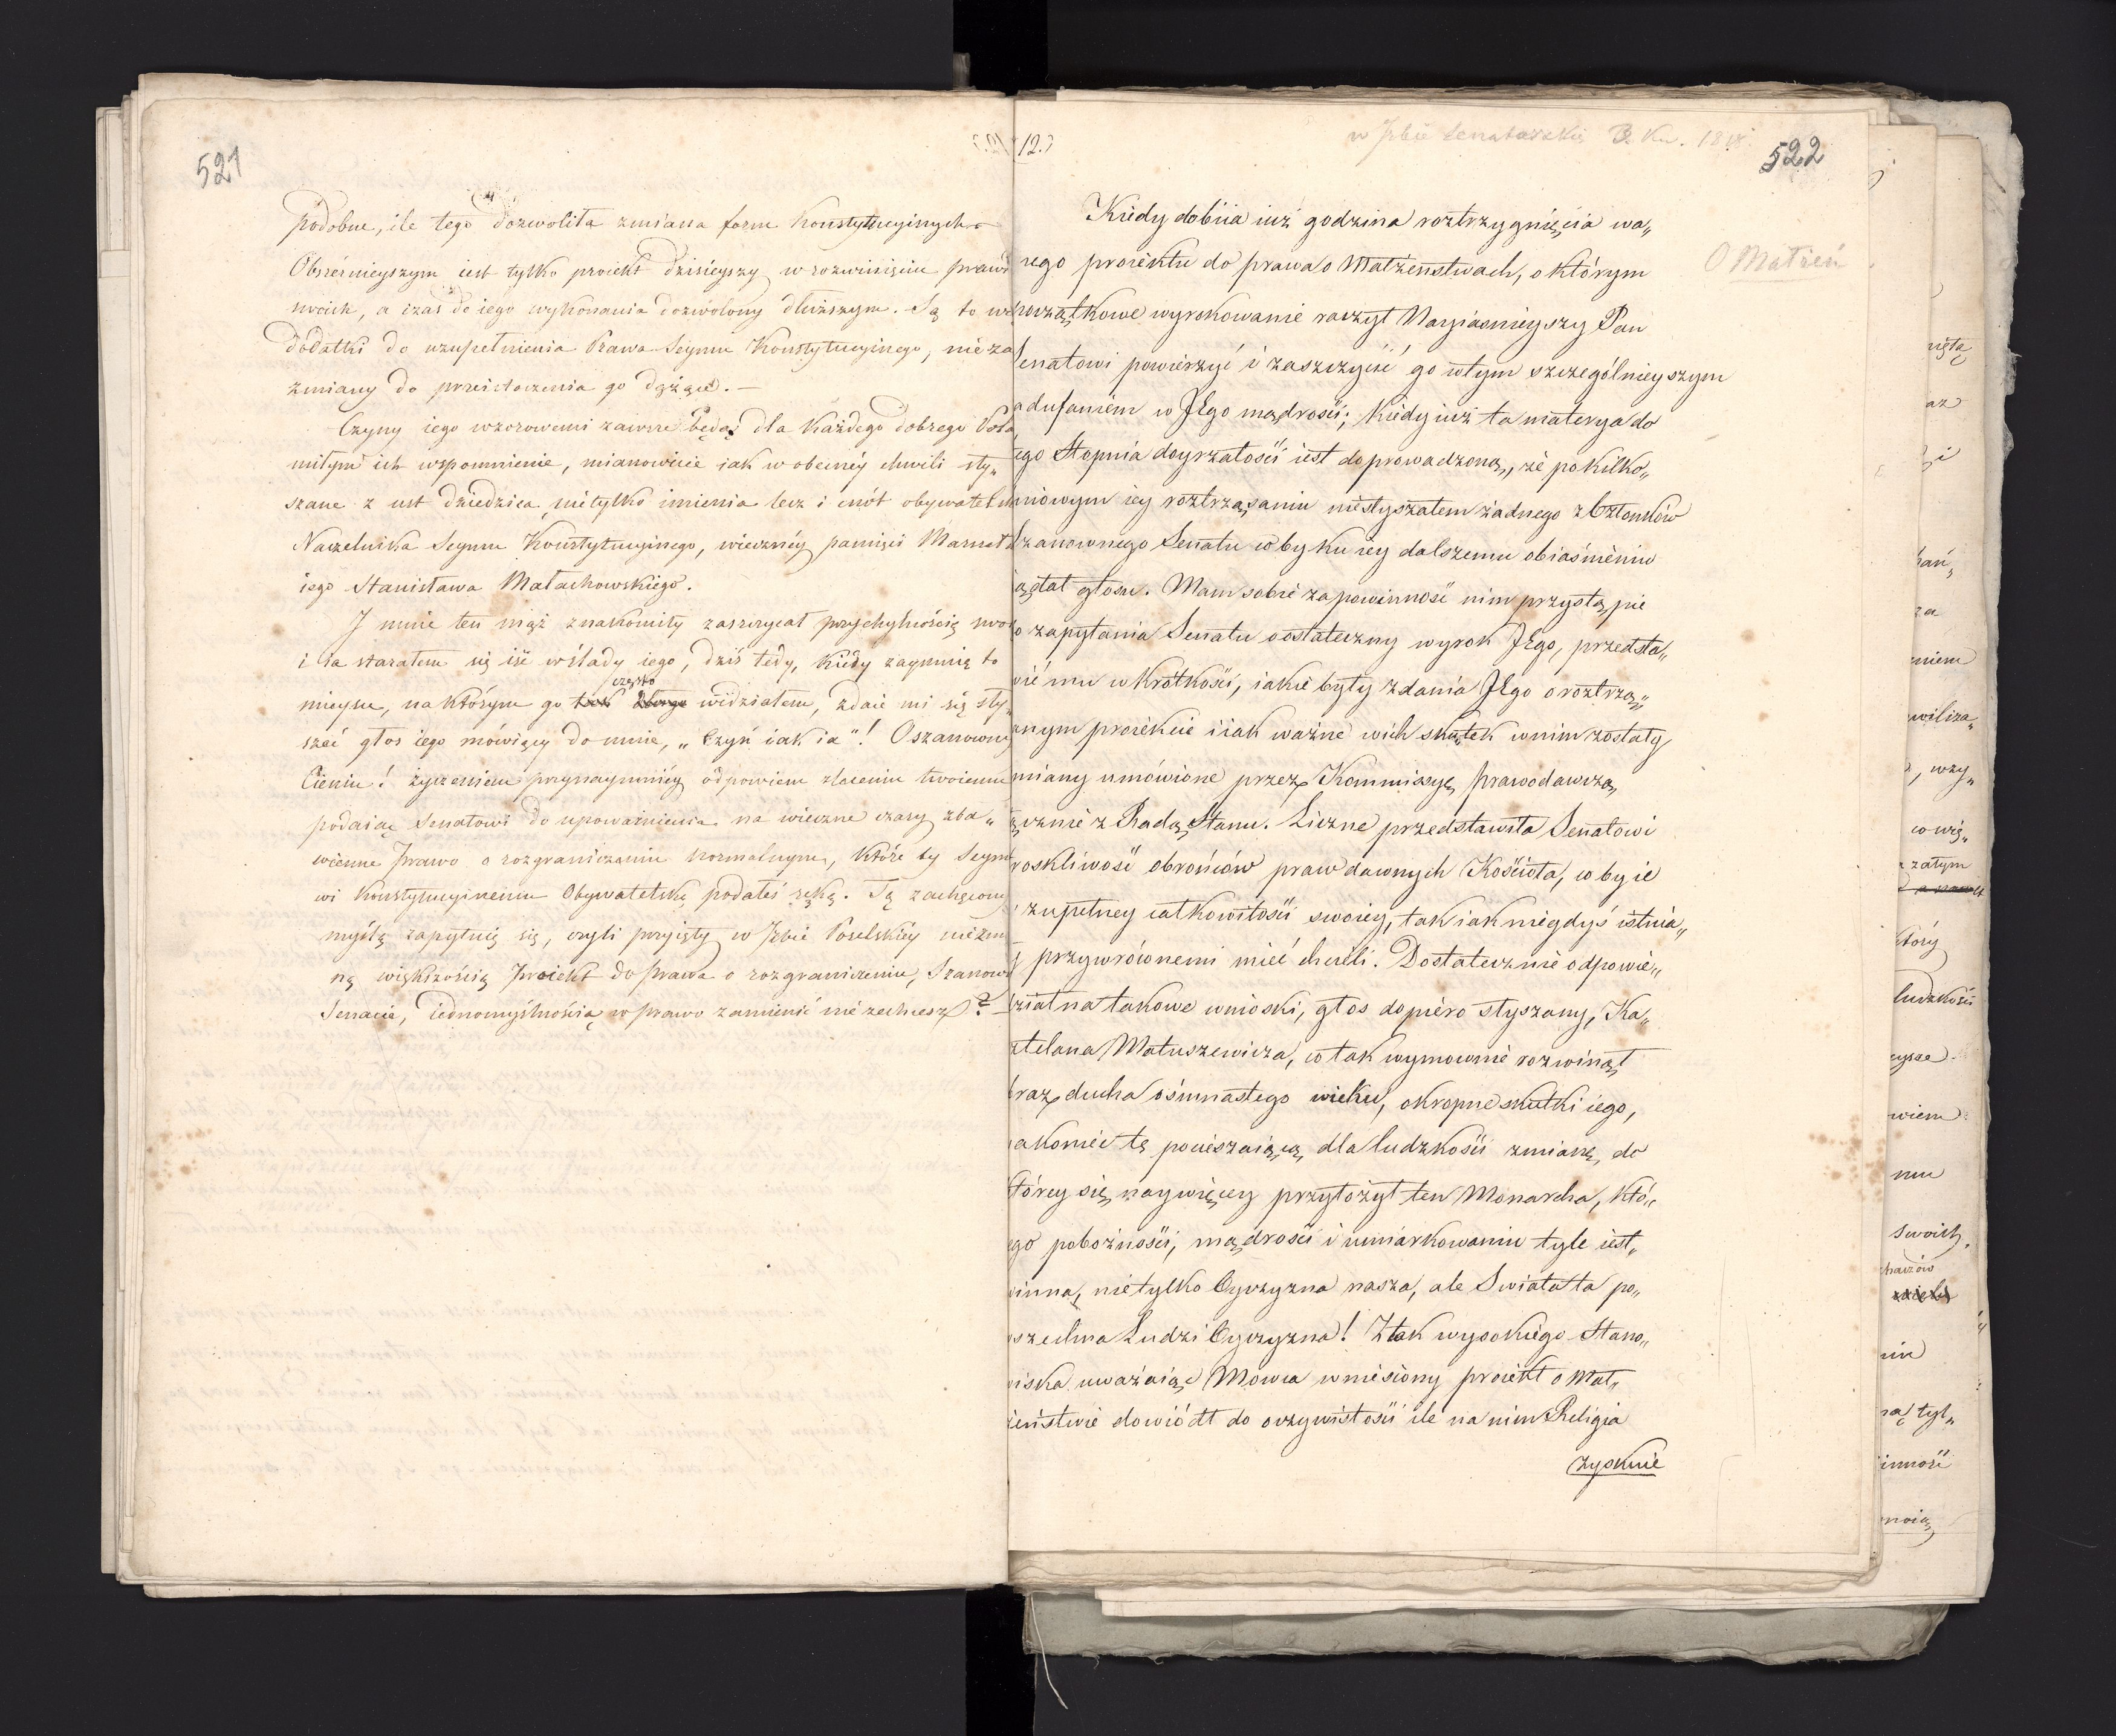 521
podobne, ile tego dozwoliła zmiana form Konstytucyinych
Obszernieyszym iest tylko proiekt dzisieyszy w rozwinięciu praw
swoich, a czas do iego wykonania dozwolony dłuższym. Są to
dodatki do uzupełnienia Prawa Seymu Konstytucyinego, nie za
zmiany do przeistoczenia go dążące. —
Czyny iego wzorowemi zawsze będąć dla Każdego dobrego Pola
miłym ich wspomnienie, mianowicie iak w obecnéy chwili sły„
szane z ust dziedzica nietylko imienia lecz i cnót obywatelsk
Naczelnika Seymu Konstytucyinego, wiecznéy pamięci Marszał
iego Stanisława Małachowskiego.
I mnie ten mąż znakomity zaszczycał przychylnością swo
i ia starałem się iść w ślady iego, dziś tedy, Kiedy zaymuię to
często
mieysce, na którym go tak długo widziałem, zdaie mi się sły„
szeć głos iego mówiący do mnie, „Czyń iak ia"! O szanowny
Cieniu! życzeniem przynaymniéy odpowiem zleceniu twoiemu
podaiąc Senatowi do upoważnienia na wieczne czasy zba„
wienne Prawo o rozgraniczaniu normalnym, które ty Seymo
wi Konstytucyinemu Obywatelską podałeś ręką. Tą zachęcony
myślą zapytuię się, czyli przyięty w Izbie Poselskiéy niezm
ną większością Proiekt do Prawa o rozgraniczeniu, Szanow
Senacie, iednomyślnością w prawo zamienić nie zechcesz?—
12.)
w Izbie Senatorskiéy 1818.
522
O Małżeń
Kiedy dobiia iuż godzina roztrzygnięcia wa„
nego proiektu do prawa o Małżenstwach, o którym
początkowe wyrokowanie raczył Nayiaśnieyszy Pan
Senatowi powierzyć i zaszczycić go w tym szczególnieyszym
adufaniem w JEgo mądrości; Kiedy iuż ta materya do
ego Stopnia doyrzałości iest doprowadzoną, że po kilko„
niowym iey roztrząsaniu niesłyszałem żadnego z Członków
Szanownego Senatu coby ku iey dalszemu obiaśnieniu
ądał głosu. Mam sobie za powinność nim przystąpię
o zapytania Senatu o ostateczny wyrok JEgo, przedsta„
wić mu w Krótkości, iakie były zdania JEgo o roztrzą„
anym proiekcie i iak ważne w ich skutek w nim zostały
miany umówione przez Kommissyę prawodawczą,
ącznie z Radą Stanu. Liczne przedstawiła Senatowi
roskliwość obrońców praw dawnych Kościoła, coby ie
zupełney całkowitości swoiey, tak iak niegdyś istnia„
y przywróconemi mieć chcieli. Dostatecznie odpowie„
dział na takowe wnioski, głos dopiéro słyszany, Ka„
ztelana Matuszewicza, co tak wymownie rozwinął
braz ducha ośmnastego wieku, okropne skutki iego,
akoniec tę pocieszaiącą dla ludzkości zmianę, do
Którey się naywięcey przyłożył ten Monarcha, któ„
ego pobożności, mądrości i umiarkowaniu tyle iest„
winna, nietylko Oyczyzna nasza, ale Swiata ta po„
wszechna Ludzi Oyczyzna! Z tak wysokiego Stano„
wiska uważaiąc Mówca wniesiony proiekt o Mał„
żeństwie dowiódł do oczywistości ile na nim Religia
zyskuie